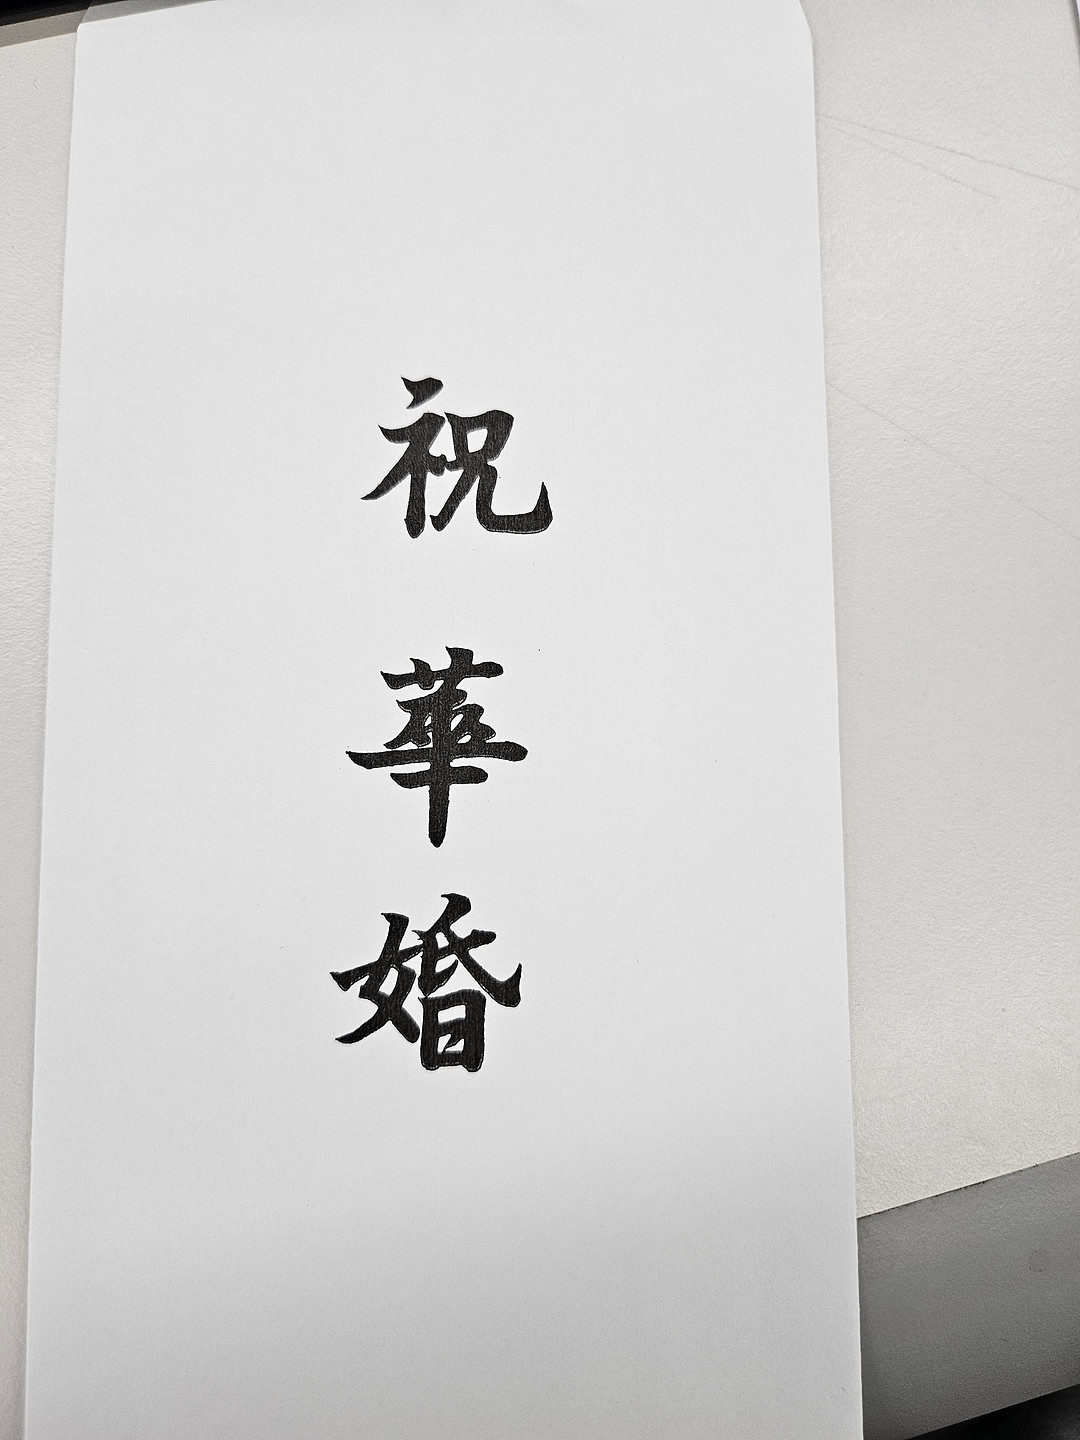 祝華婚